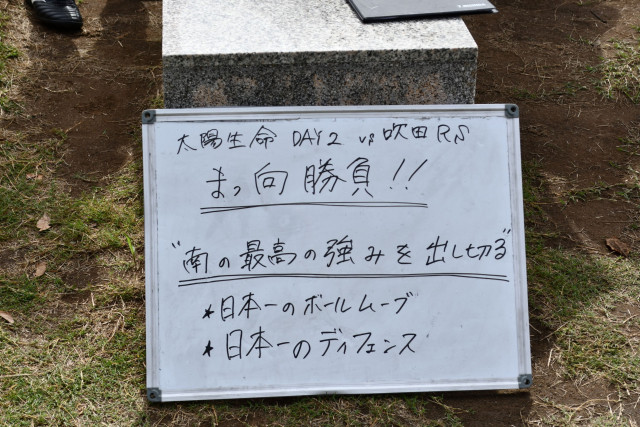 太陽生命 DAY2 vs 吹田RS
まっ向勝負!!
"南の最高の強みを出し切る"
*日本一のボールムーブ
*日本一のディフェンス